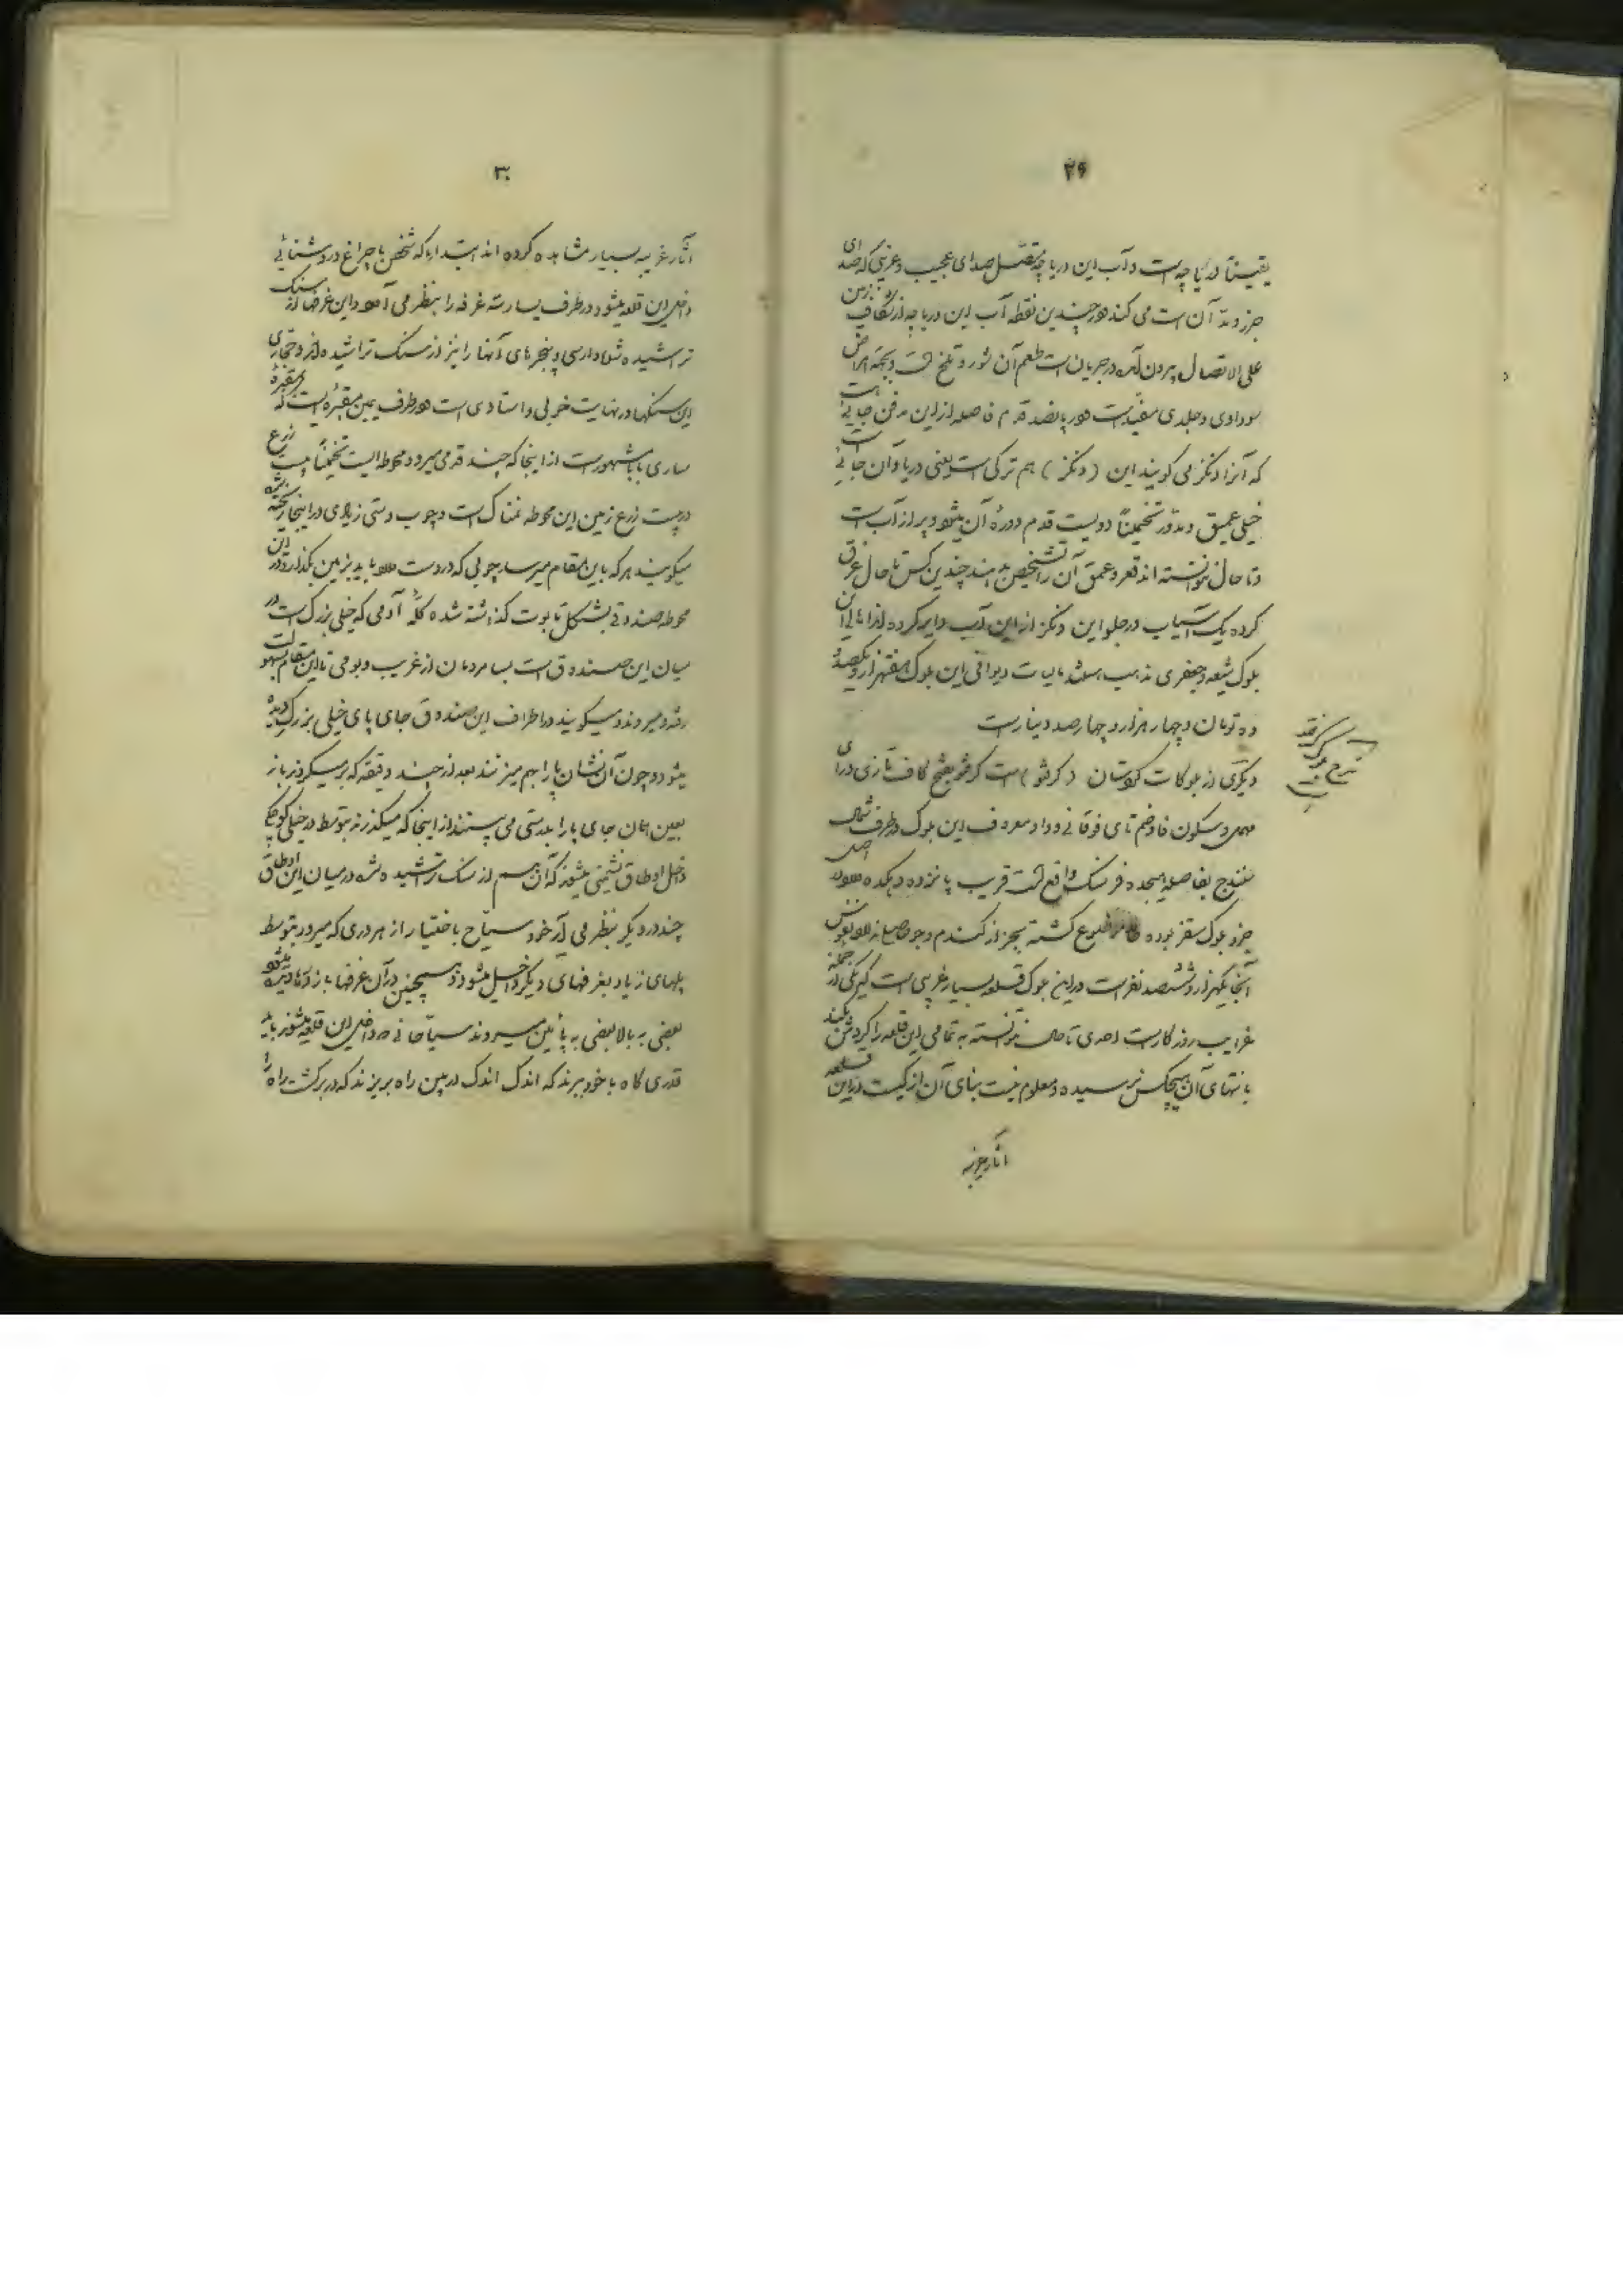 ۲۹
یقیناً دریاچه است و آب این دریاچه متصل صدای عجیب و غریبی که صدای
جزر و مد آن است می کند و در چندین نقطه آب این دریاچه از شکاف زمین
علی الاتصال بیرون آمده در جریان است طعم آن شور و تلخ است و بجهة امراض
سوداوی و جلدی مفید است و در پانصد قدم فاصله از این جائی است
که آنرا دنگز می گویند این (دنگز) هم ترکی است یعنی دریا و آن جائی است
خیلی عمیق و مدور تخمیناً دویست قدم دورهٔ آن میشود و پر از آب است
و تا حال نتوانسته اند قعر و عمق آن را تشخیص بدهند چندین کس تا حال غرق
کرده یک آسیاب در جلو این دنگز از این آب دایر کرده اند اهالی این
بلوک شیعه و جعفری مذهب هستند مالیات دیوانی این بلوک هفتهزار و یکصد و
ده تومان و چهار هزار و چهار صد دینار است
دیگری از بلوکات کردستان (کرفتو) است کرفتو بفتح کاف تازی و رای
مهمله و سکون فا و ضم تای فوقانی و واو معروف این بلوک در طرف شمال
سنندج بفاصله هیجده فرسنگ واقع است قریب پانزده دهکده دارد اصل
جزو بلوک سقز بوده گشته بجز از گندم و جو حاصلی ندارد نفوس
آنجا یکهزار و ششصد نفر است در این بلوک قلعه بسیار غریبی است که یکی از جمله
غرایب روزگار است احدی تا حال نتوانسته به تمامی این قلعه را گردش بکند
بانتهای آن هیچکس نرسیده و معلوم نیست بنای آن از کیست در این قلعه
آثار غریبه
شرح بلوک کرفتو
۳۰
آثار غریبه بسیار مشاهده کرده اند ابتداءً که شخص با چراغ و روشنائی
داخل این قلعه میشود در طرف یسار سه غرفه را بنظر می آورد این غرفها از سنگ
تراشیده شده و ارسی و پنجرهای آنها را نیز از سنگ تراشیده اند و حجاری
این سنگها در نهایت خوبی و استادی است و در طرف یمین مقبره ایست که بمقبرهٔ
ساری بابا مشهور است از اینجا که چند قدمی میرود محوطه ایست تخمیناً بیست زرع
در بیست زرع زمین این محوطه نمناک است و چوب دستی زیادی در اینجا ریخته شده
میگویند هر که باین مقام میرسد چوبی که در دست دارد باید بزمین بگذارد و در این
محوطه صندوقی بشکل تابوت گذاشته شده کلّهٔ آدمی که خیلی بزرگ است در
میان این صندوق است بسا مردمان از غریب و بومی تا این مقام بسهولت
رفته و میروند و میگویند در اطراف این صندوق جای پای خیلی بزرگ دیده
میشود و چون آن نشان پا را بهم میزنند بعد از چند دقیقه که برمیگردند باز
بعین همان جای پا را بدرستی می بینند از اینجا که میگذرند بتوسط در خیلی کوچکی
داخل اوطاق نشیمنی میشوند که آن هم از سنگ تراشیده شده در میان این اوطاق
چند در دیگر بنظر می آید خود سیاح باختیار از هر دری که میرود بتوسط
پلهای زیاد بغرفهای دیگر داخل میشود و همچنین در آن غرفها باز درها دیده میشود
بعضی به بالا بعضی به پائین میروند سیاحانی که داخل این قلعه میشوند باید
قدری کاه با خود ببرند که اندک اندک در بین راه بریزند که در برگشت راه را